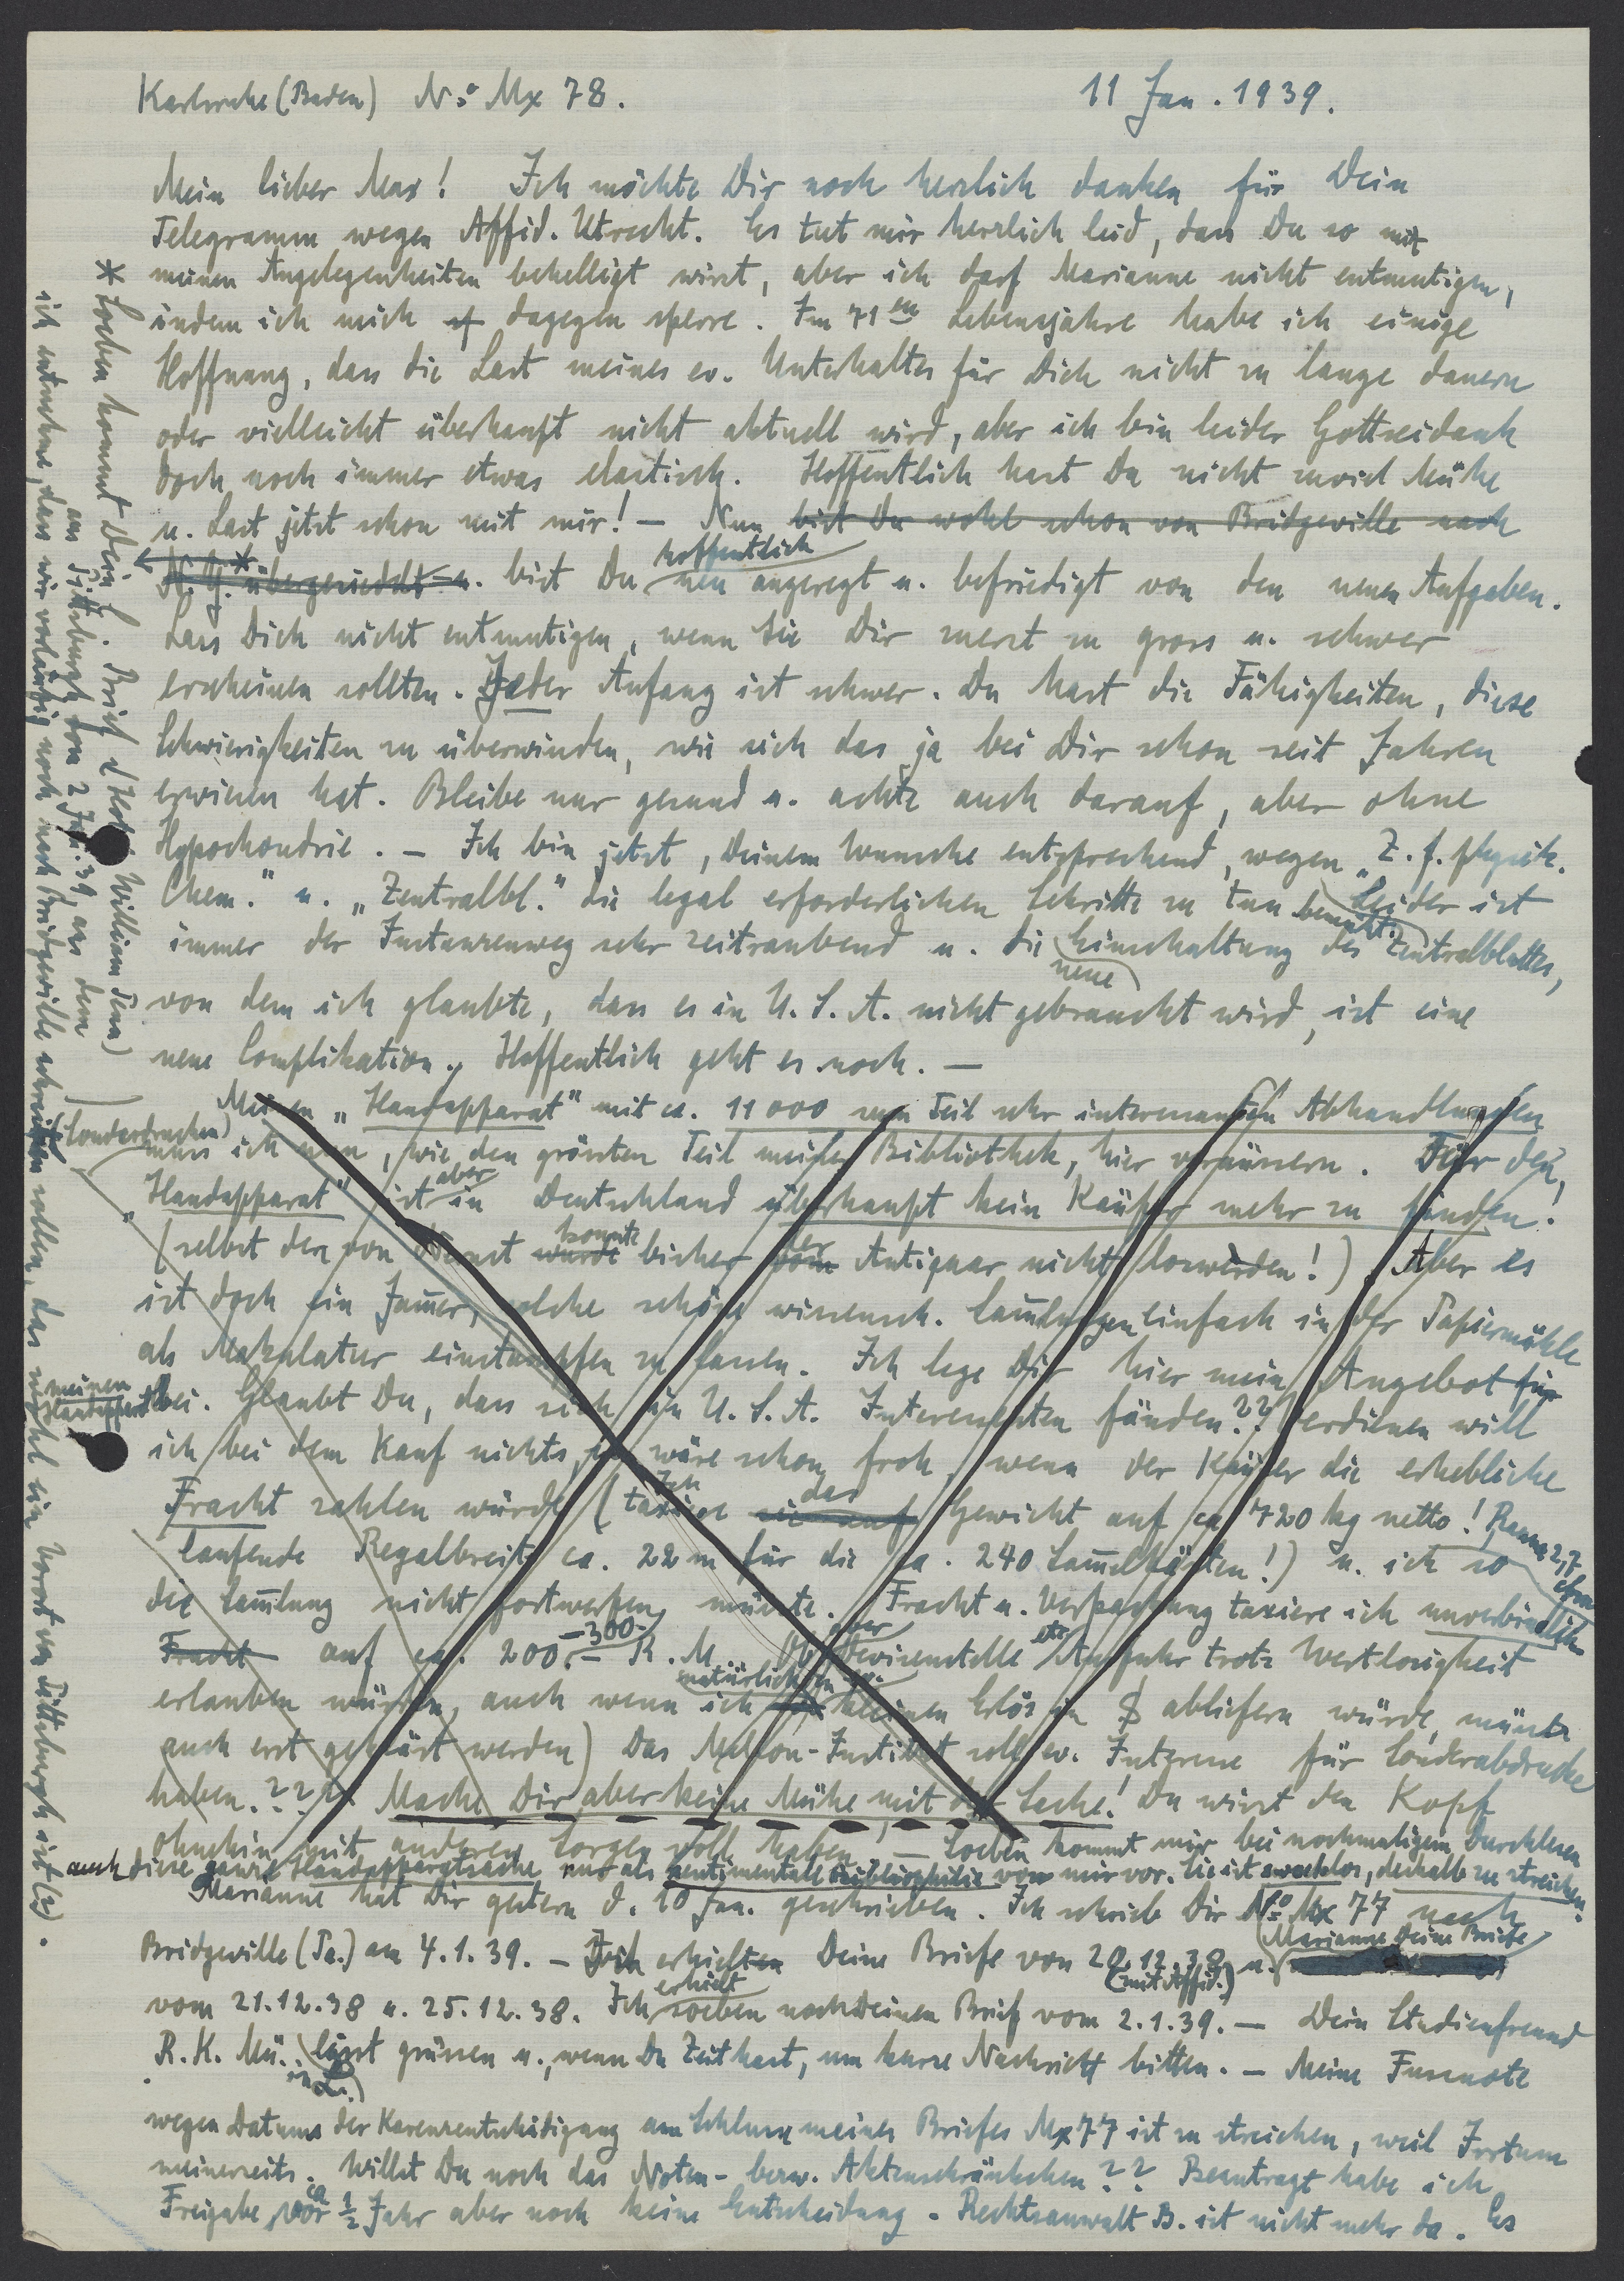 Karlsruhe (Baden) No Mx 78. 11 Jan. 1939.
Mein lieber Max! Ich möchte Dir noch herzlich danken für Dein
Telegramm wegen Affid. Utrecht. Es tut mir herzlich leid, dass Du so mit
meinen Angelegenheiten behelligt wirst, aber ich darf Marianne nicht entmutigen,
indem ich mich dagegen sperre. Im 71en Lebensjahre habe ich einige
Hoffnung, dass die Last meines ev. Unterhaltes für Dich nicht zu lange dauern
oder vielleicht überhaupt nicht aktuell wird, aber ich bin leider Gottseidank
doch noch immer etwas elastisch. Hoffentlich hast Du nicht zuviel Mühe
u. Last jetzt schon mit mir! – Nun bist Du wohl schon von Bridgeville nach
N.Y. übergesiedelt * u. bist Du hoffentlich neu angeregt u. befriedigt von den neuen Aufgaben.
Lass Dich nicht entmutigen, wenn Sie Dir zuerst zu gross u. schwer
erscheinen sollten. Jeder Anfang ist schwer. Du hast die Fähigkeiten, diese
Schwierigkeiten zu überwinden, wie sich das ja bei Dir schon seit Jahren
erwiesen hat. Bleibe nur gesund u. achte auch darauf, aber ohne
Hypochondrie. – Ich bin jetzt, Deinem Wunsche entsprechend, wegen „Z. f. physik.
Chem." u. „Zentralbl." die legal erforderlichen Schritte zu tun bemüht. Leider ist
immer der Instanzenweg sehr zeitraubend u. die neue Einschaltung des Zentralblattes,
von dem ich glaubte, dass es in U.S.A. nicht gebraucht wird, ist eine
neue Complikation. Hoffentlich geht es noch. –
Meinen „Handapparat" mit ca. 11000 zum Teil sehr interessanten Abhandlungen
(Sonderdrucken) muss ich nun, wie den grössten Teil meiner Bibliothek, hier veräussern. Für den
„Handapparat" ist aber in Deutschland überhaupt kein Käufer mehr zu finden!
(selbst den von Nernst wurde konnte bisher vom der Antiquar nicht loswerden!) Aber es
ist doch ein Jammer, solche schöne wissensch. Sammlungen einfach in der Papiermühle
als Makulatur einstampfen zu lassen. Ich lege Dir hier mein Angebot für
meinen Handapparat bei. Glaubst Du, dass sich in U.S.A. Interessenten fänden?? Verdienen will
ich bei dem Kauf nichts, wäre schon froh, wenn der Käufer die erhebliche
Fracht zahlen würde (Ich taxiere sie auf das Gewicht auf ca 720 kg netto! Raum 2,7 cbm
laufende Regalbreite ca. 22 m für die ca. 240 Sammelkästen!) u. ich so
die Sammlung nicht fortwerfen müsste. Fracht u. Verpackung taxiere ich unverbindlich
Fracht auf ca. 200.– –300– R.M. Ob aber Devisenstelle etc Ausfuhr trotz Wertlosigkeit
erlauben würden, auch wenn ich natürlich den ev. kleinen Erlös in $ abliefern würde, müsste
auch erst geklärt werden) Das Mellon-Institut soll ev. Interesse für Sonderabdrucke
haben.??? Mache Dir aber keine Mühe mit der Sache! Du wirst den Kopf
ohnehin mit anderen Sorgen voll haben. – Soeben kommt mir bei nochmaligem Durchlesen
auch diese ganze Handapparatsache nur als sentimentale Bibliophilie von mir vor. Sie ist zwecklos, deshalb zu streichen.
Marianne hat Dir gestern d. 10 Jan. geschrieben. Ich schrieb Dir No Mx 77 nach
Bridgeville (Pa.) am 4.1.39. – Ich erhielten Deine Briefe von 20.12.38 (mit Affid.) u. Marianne Deine Briefe
vom 21.12.38 u. 25.12.38. Ich erhielt soeben noch Deinen Brief vom 2.1.39. – Dein Studienfreund
R.K. Mü. (in L.) lässt grüssen u., wenn Du Zeit hast, um kurze Nachricht bitten. – Meine Fussnote
wegen Datums der Karenzentschädigung am Schluss meines Briefes Mx 77 ist zu streichen, weil Irrtum
meinerseits. Willst Du noch das Noten- bezw. Aktenschränkchen?? Beantragt habe ich
Freigabe vor ca 1/2 Jahr aber noch keine Entscheidung. Rechtsanwalt B. ist nicht mehr da. Es
* Soeben kommt Dein l. Brief (Hotel William Penn)
aus Pittsburgh vom 2 Jan. 39, aus dem
ich entnehme, dass wir vorläufig noch nach Bridgeville schreiben sollen, das wohl ein Vorort von Pittsburgh ist (?).